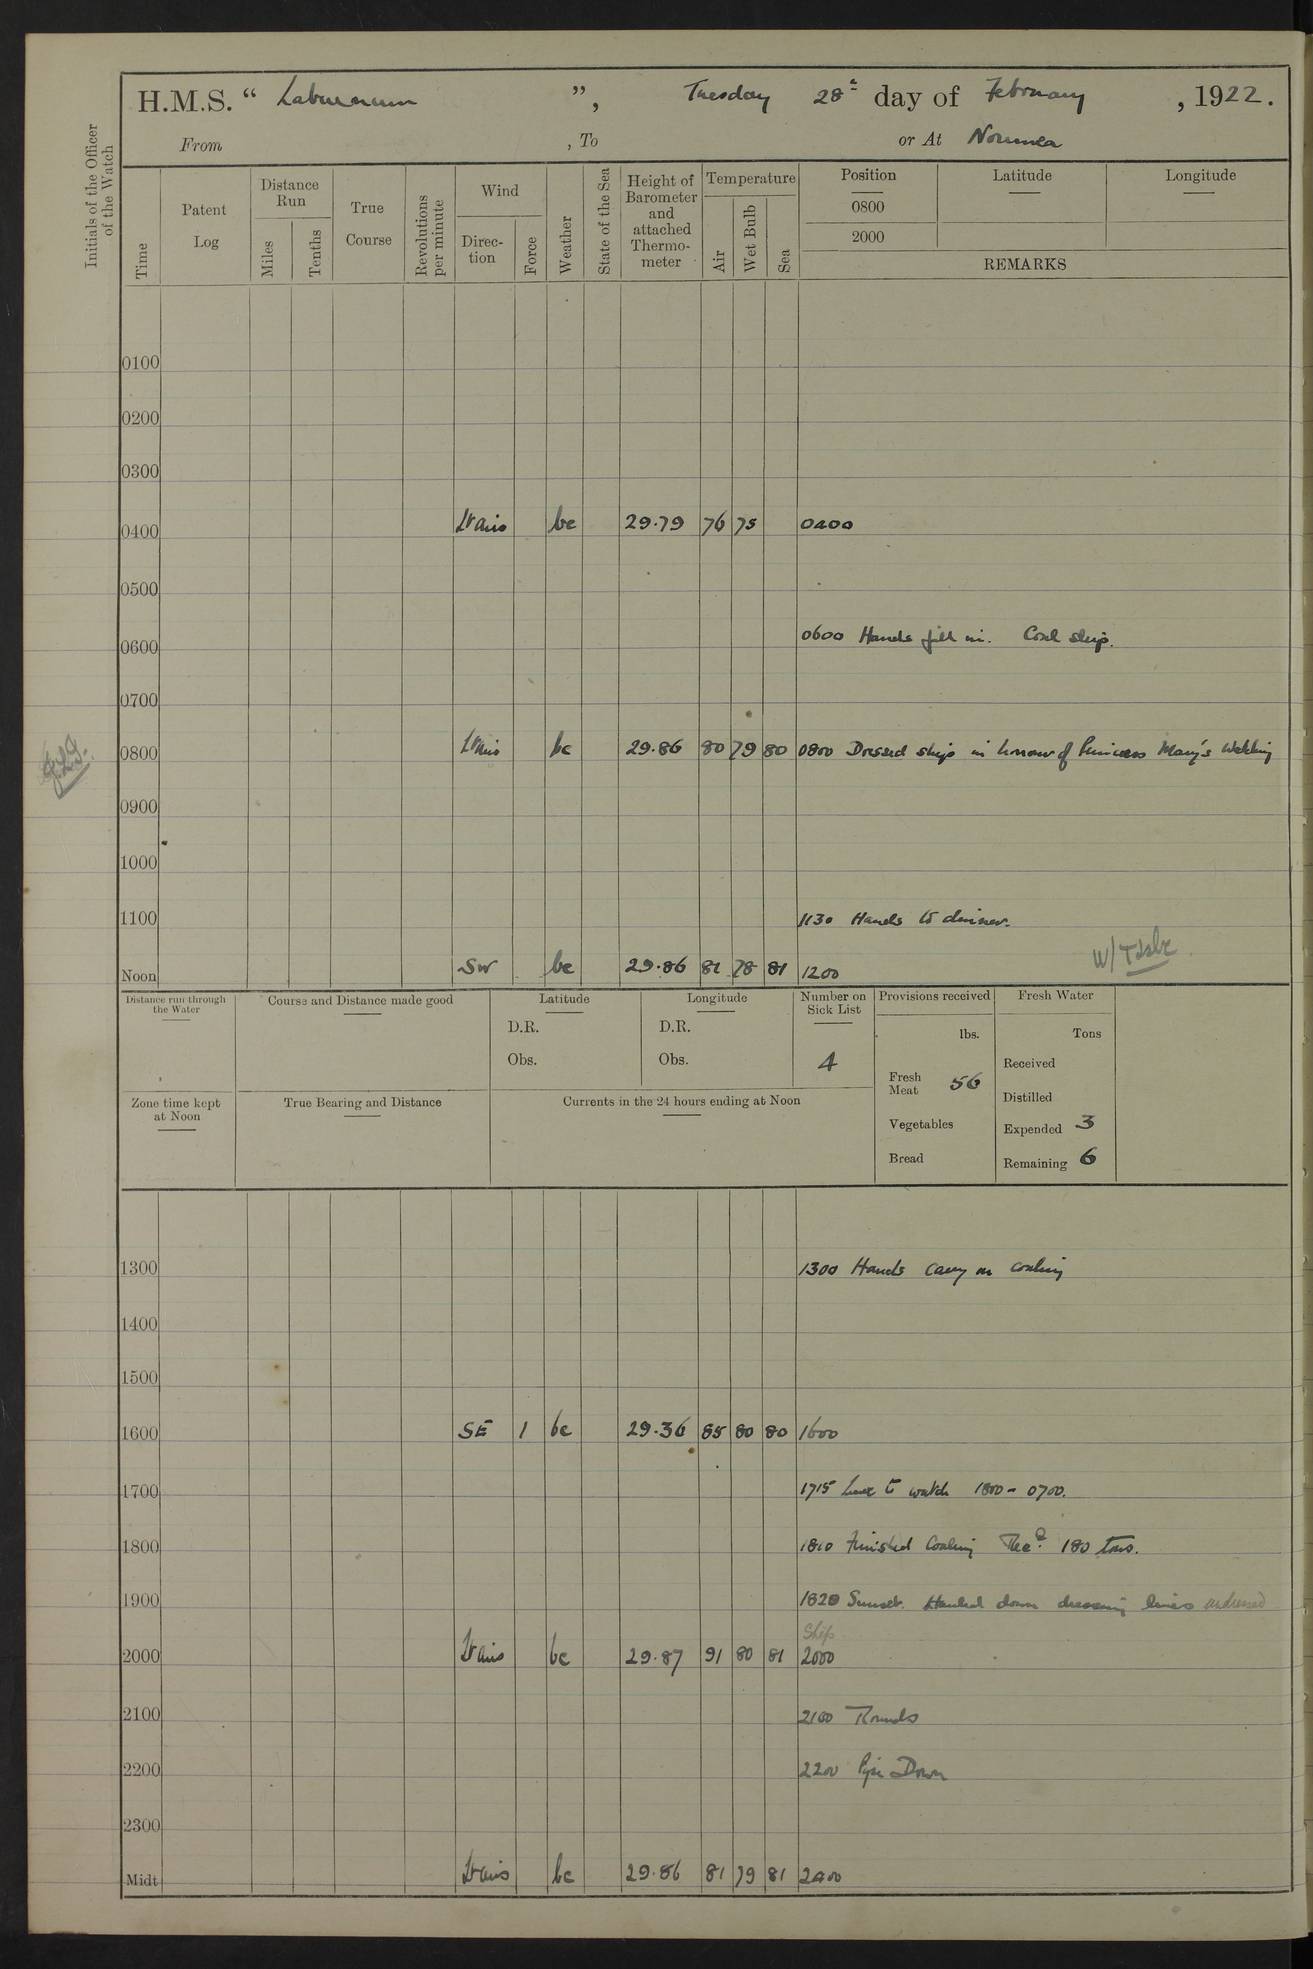 H.M.S. “ Laburnum ”, Tuesday 28th day of February , 1922.
From , To or At Noumea
Initials of the Officer of the Watch
Time
Patent Log
Distance Run
Miles
Tenths
True Course
Revolutions per minute
Wind
Direc-tion
Force
Weather
State of the Sea
Height of Barometer and attached Thermo-meter
Temperature
Air
Wet Bulb
Sea
Position Latitude Longitude
0800
2000
REMARKS
0100
0200
0300
0400 Lt airs bc 29.79 76 75 0400
0500
0600 0600 Hands fall in. Coal ship.
0700
0800 Lt airs bc 29.86 80 79 80 0800 Dressed ship in honour of Princess Mary's Wedding
0900
1000
1100 1130 Hands to dinner.
Noon SW bc 29.86 81 78 81 1200
Distance run through the Water
Course and Distance made good
Latitude
D.R.
Obs.
Longitude
D.R.
Obs.
Number on Sick List
4
Provisions received
lbs.
Fresh Meat 56
Vegetables
Bread
Fresh Water
Tons
Received
Distilled
Expended 3
Remaining 6
Zone time kept at Noon
True Bearing and Distance
Currents in the 24 hours ending at Noon
1300 1300 Hands carry on coaling
1400
1500
1600 SE 1 bc 29.36 85 80 80 1600
1700 1715 Leave to watch 1800 - 0700.
1800 1810 Finished Coaling Recd. 180 tons.
1900 1820 Sunset. Hauled down dressing lines undressed
Ship
2000 Lt airs bc 29.87 91 80 81 2000
2100 2100 Rounds
2200 2200 Pipe Down
2300
Midt Lt airs bc 29.86 81 79 81 2400